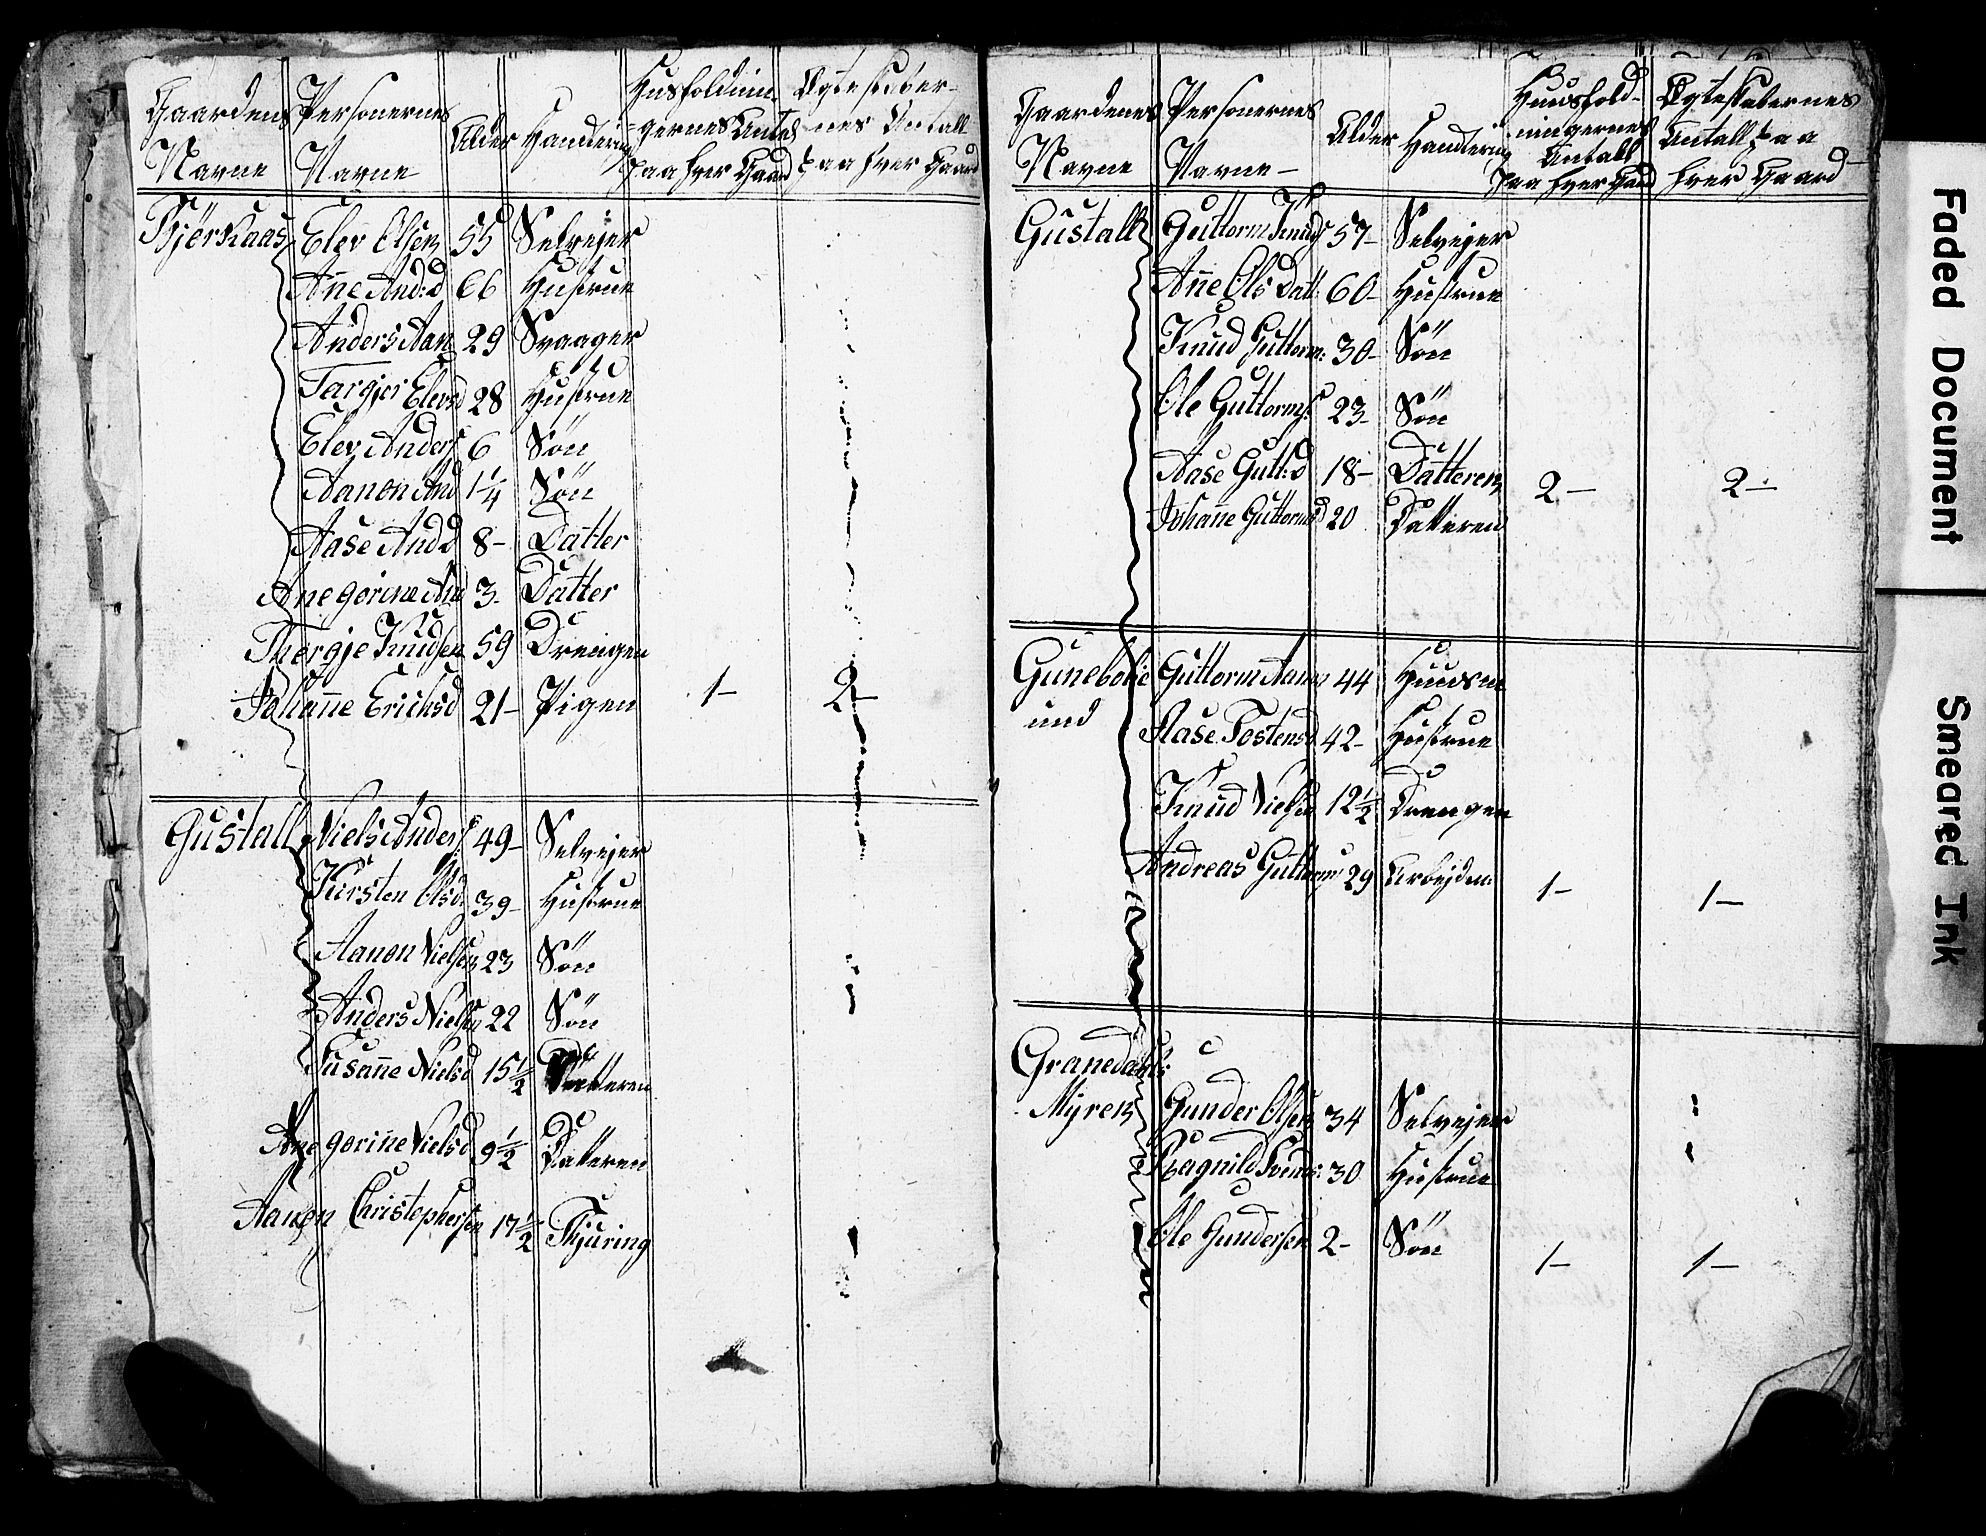 Gaardens Navne | Personernes Navne | Alder | Handtering | Husholdnin-gernes Antal paa hver Gaard | Ægteskaber-nes Antall paa hver Gaard
Bjørkaas | Elev Olsen | 55 | Selvejer
Añe And:d | 66 | Hustrue
Anders Aan | 29 | Svaager
Targjer Elevsd | 28 | Hustrue
Elev Anders | 6 | Søn
Aanon And | 1 1/4 | Søn
Aase And d | 8- | Datter
Anegorine And | 3- | Datter
Thorgje Knudsen | 59 | Drengen
Johañe Erichsd | 21- | Pigen | 1- | 2-
Gustall | Niels Anders | 49- | Selvejer
Kirsten Olsd | 39- | Hustrue
Aanon Nielsen | 23 | Søn
Anders Nielsen | 22 | Søn
Susañe Nielsd | 15 1/2 | Datteren
Anegoriñe Nielsd | 9 1/2 | Datteren
Aanon Christophersen | 17 1/2
Gaardenes Navne | Personernes Navne- | Alder | Handtering | Huushold-ningernes Antall paa hver Gaard | Ægteskabernes Antall paa hver Gaard
Gustall | Guttorm Knuds | 57- | Selvejer
Añe Ols Datt: | 60- | Hustrue
Knud Guttorm: | 30- | Søn
Ole Guttorms | 23- | Søn
Aase Gutt:d | 18- | Datteren | 2- | 2-
Johañe Guttormsd | 20 | Datteren
Gunebolie | Guttorm Aanon | 44 | Huusm
und | Aase Tostensd | 42- | Hustrue
Knud Nielsen | 12 1/2 | Drengen
Andreas Guttorms | 29 | Arbejdsm: | 1- | 1-
Granedahls
Myren | Gunder Olsen | 34 | Selvejer
Ragnild Svends: | 30 | Hustrue
Ole Gundersen | 2- | Søn | 1- | 1-
Faded Document
Smeared Ink